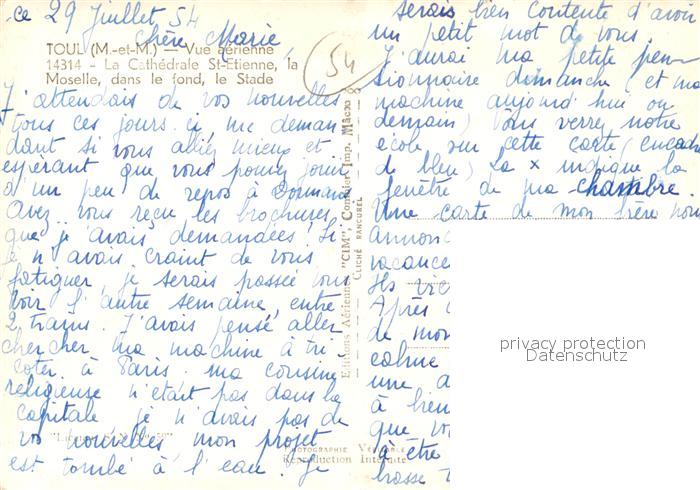 ce 29 Juillet 54
Chère Marie,
TOUL (M.-et-M.) — Vue aérienne
14314 - La Cathédrale St-Etienne, la
Moselle, dans le fond, le Stade
J'attendais de vos nouvelles
tous ces jours ci, me deman
dant si vous alliez mieux et
espérant que vous pouvez jouir
à un peu de repos à Dormans
Avez-vous reçu les brochures
que j'avais demandées. Si
je n'avais craint de vous
fatiguer, je serais passée vous
voir l'autre semaine, entre
2 trains. J'avais pensé aller
chercher ma machine à tri
coter à Paris. ma cousine
religieuse n'était pas dans la
capitale je n'avais pas de
vos nouvelles mon projet
est tombé à l'eau. Je
54
Editions Aériennes "CIM", Combier Imp. Mâcon
CLICHÉ RANCUREL
PHOTOGRAPHIE VÉRITABLE
Reproduction Interdite
serais bien contente d'avoir
un petit mot de vous.
J'aurai ma petite pen
sionnaire dimanche (et ma
machine aujourd'hui ou
demain) Vous verrez notre
école sur cette carte (encadré
de bleu) La x indique la
fenêtre de ma chambre.
Une carte de mon frère nous
annonc
vacance
Ils
Après
de mon
calme
une
à bien
que vo
à être
basse
privacy protection
Datenschutz